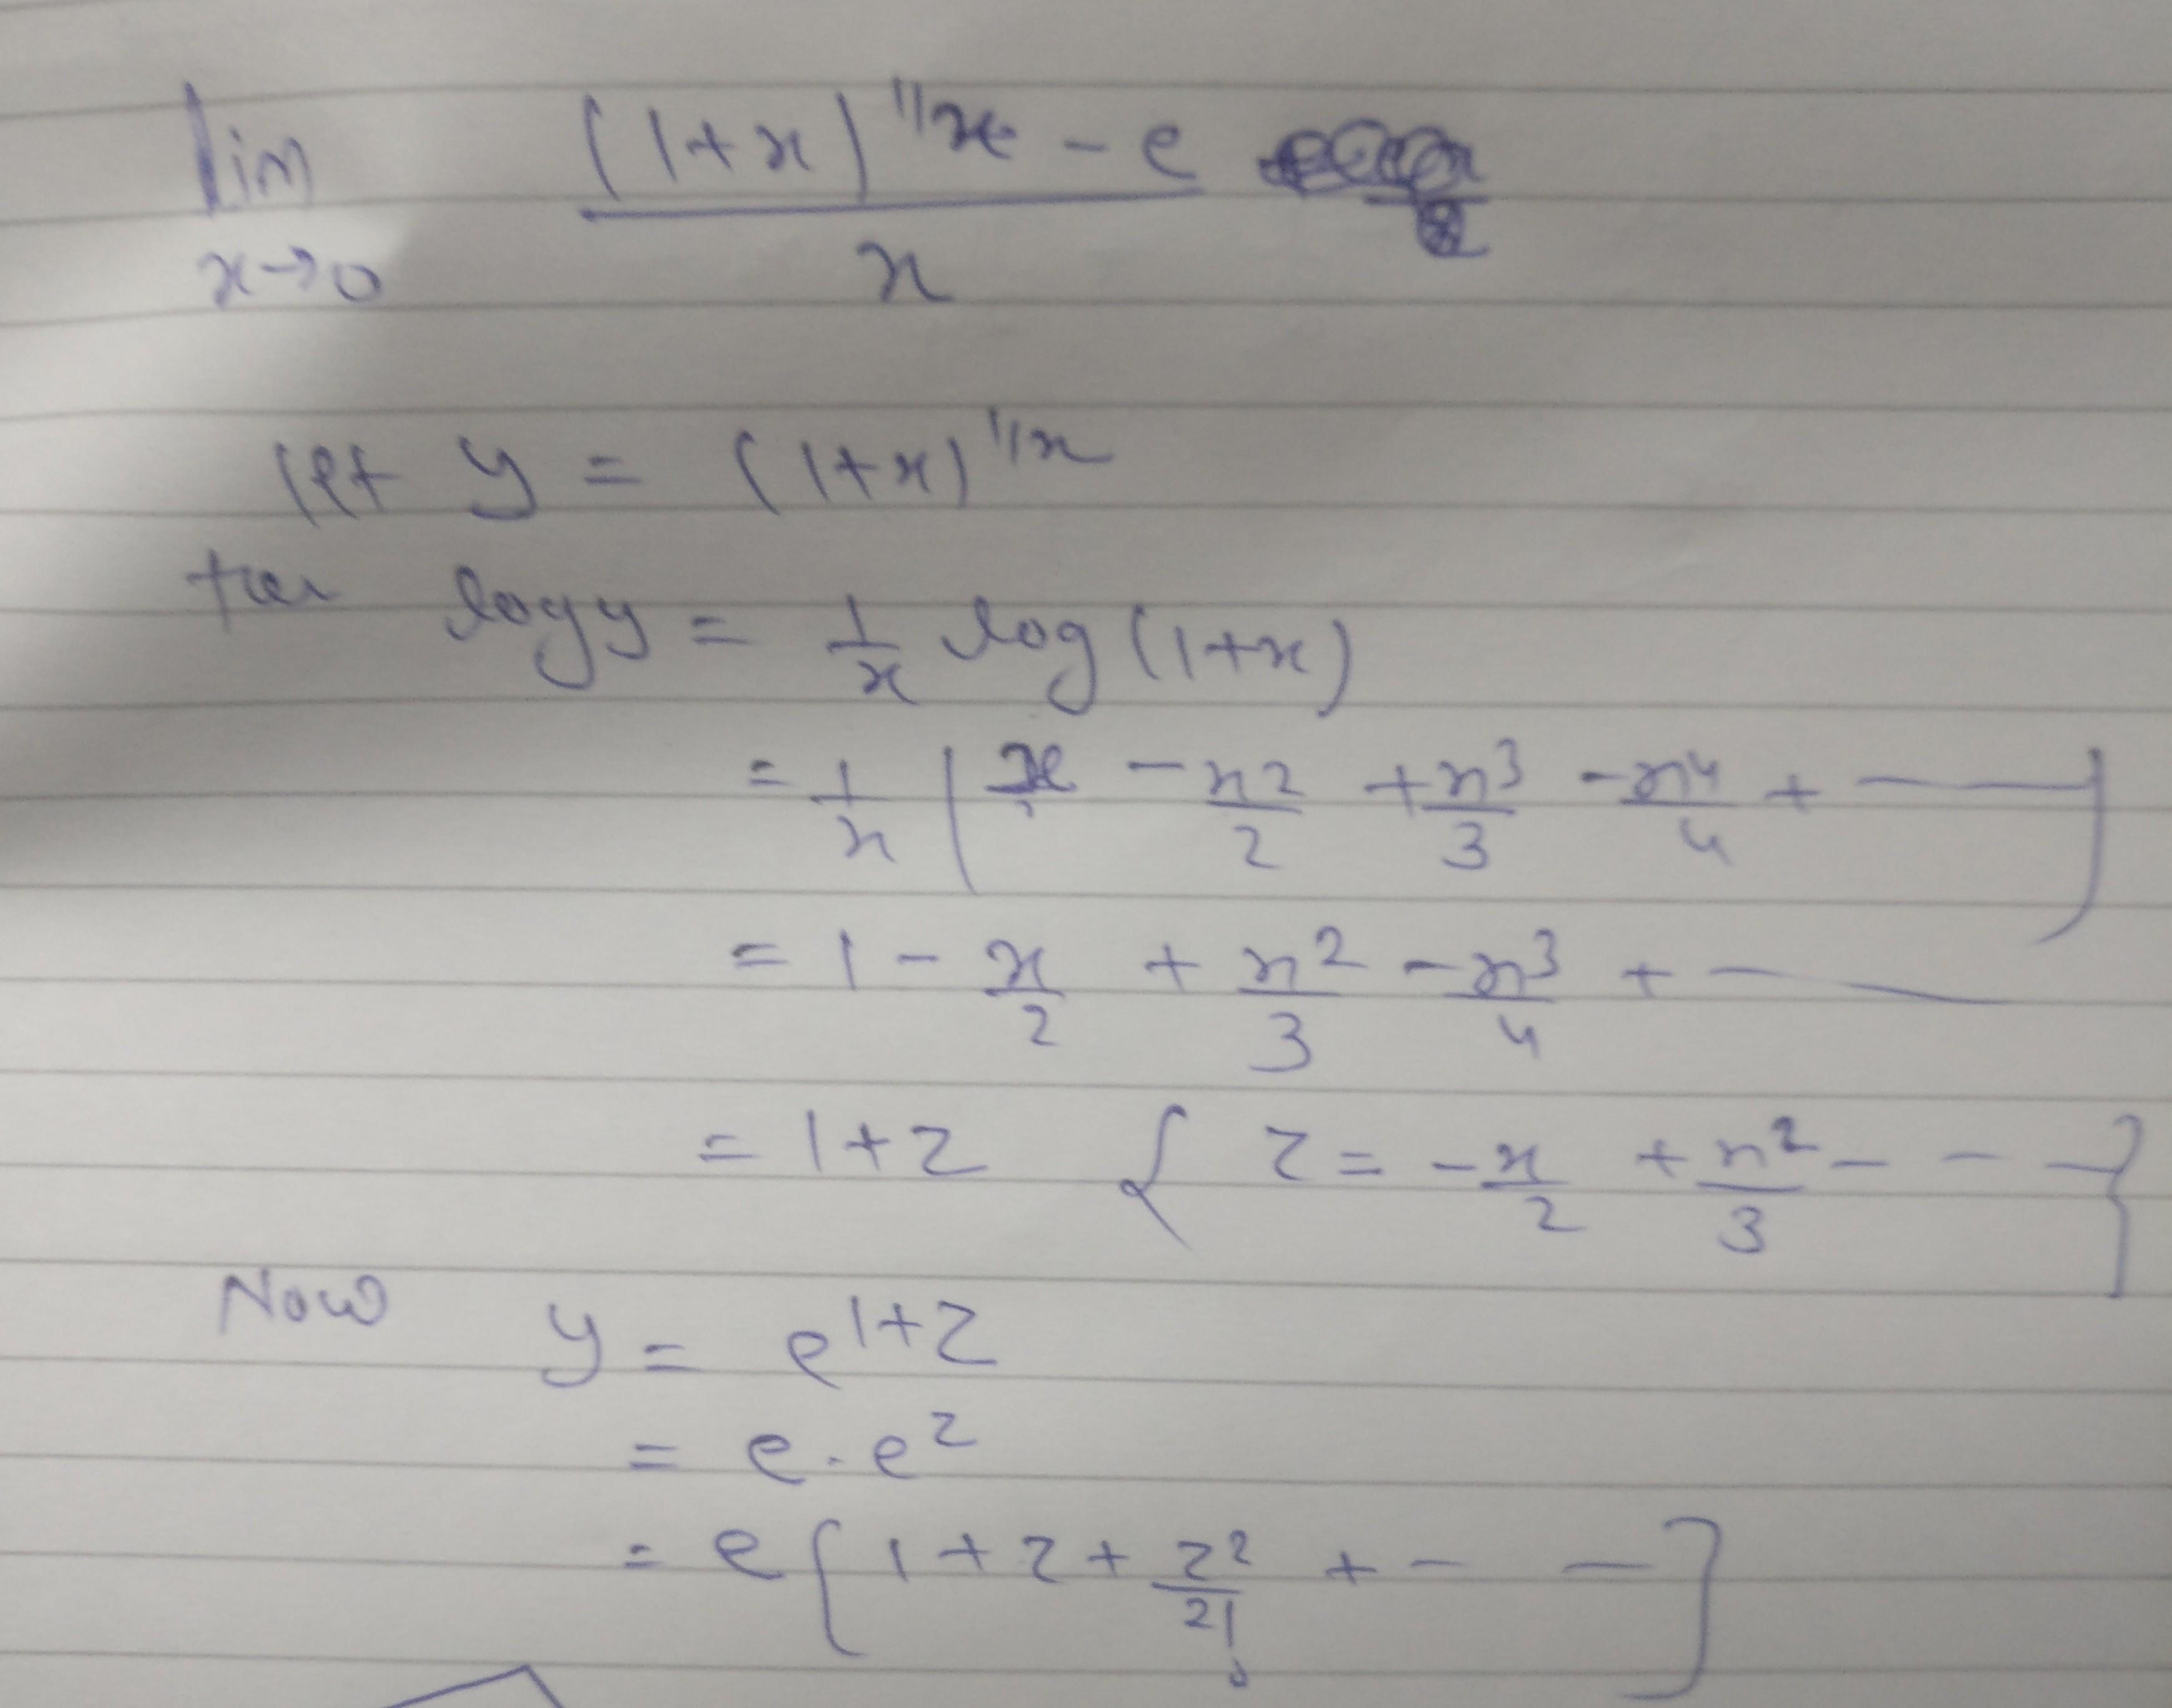 lim x→0 ((1+x)^{1/x} - e) / x
let y = (1+x)^{1/x}
log y = 1/x log(1+x)
= 1/x ( x - x^2/2 + x^3/3 - x^4/4 + --- )
= 1 - x/2 + x^2/3 - x^3/4 + ---
= 1+z { z = -x/2 + x^2/3 - - - }
Now y = e^{1+z}
= e.e^z
= e [ 1 + z + z^2/2! + - - ]